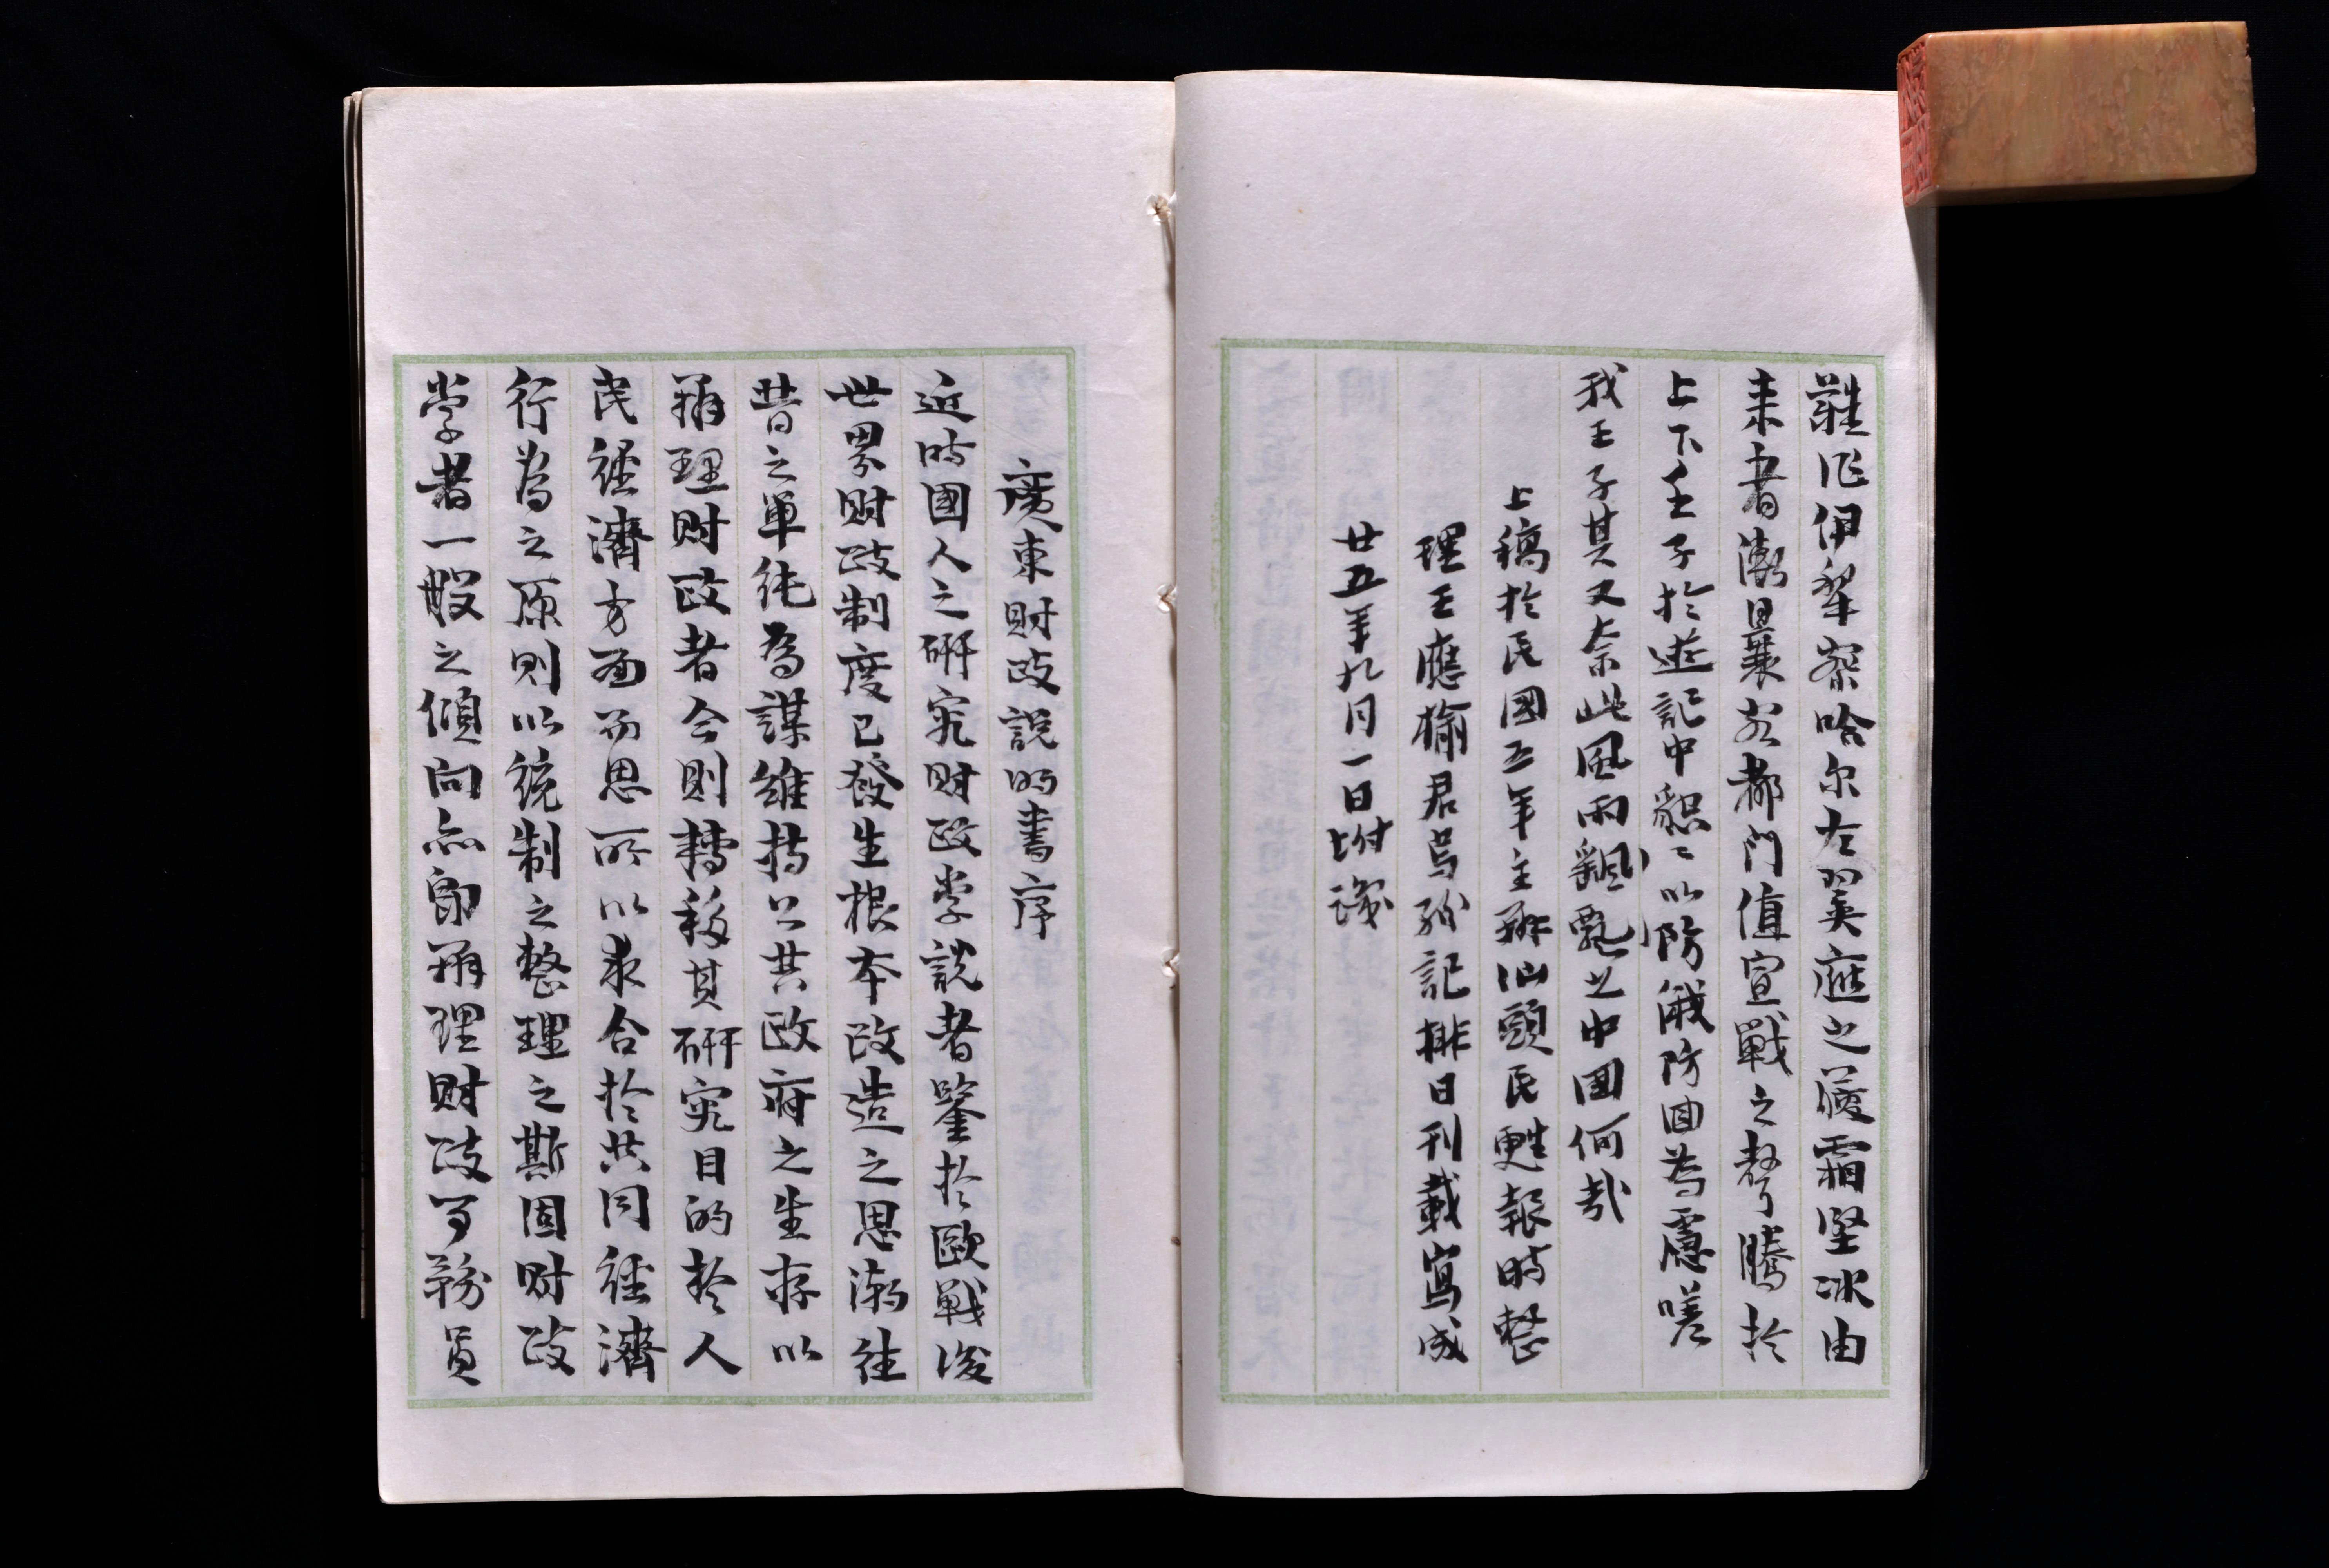 難作伊犂察哈尔左翼應之履霜堅冰由
来者漸曩於都門值宣戰之聲騰於
上下壬子於遊記中懇〻以防俄防回為慮嗟
我王子其又奈此風雨飄颻之中国何哉
上稿於民國五年主辦汕頭民甦報時整
理王應榆君烏 記排日刊載寫成
廿五年九月一日坿識
廣東財政説明書序
近時國人之研究財政学説者鑒於歐戰後
世界財政制度已發生根本改造之思潮往
昔之單純為謀維持公共政府之生存以
稱理財政者今則轉移其研究目的於人
民經濟方面而思所以求合於共同經濟
行為之原則以統制之整理之斯固財政
学者一般之傾向亦即稱理財政習務員